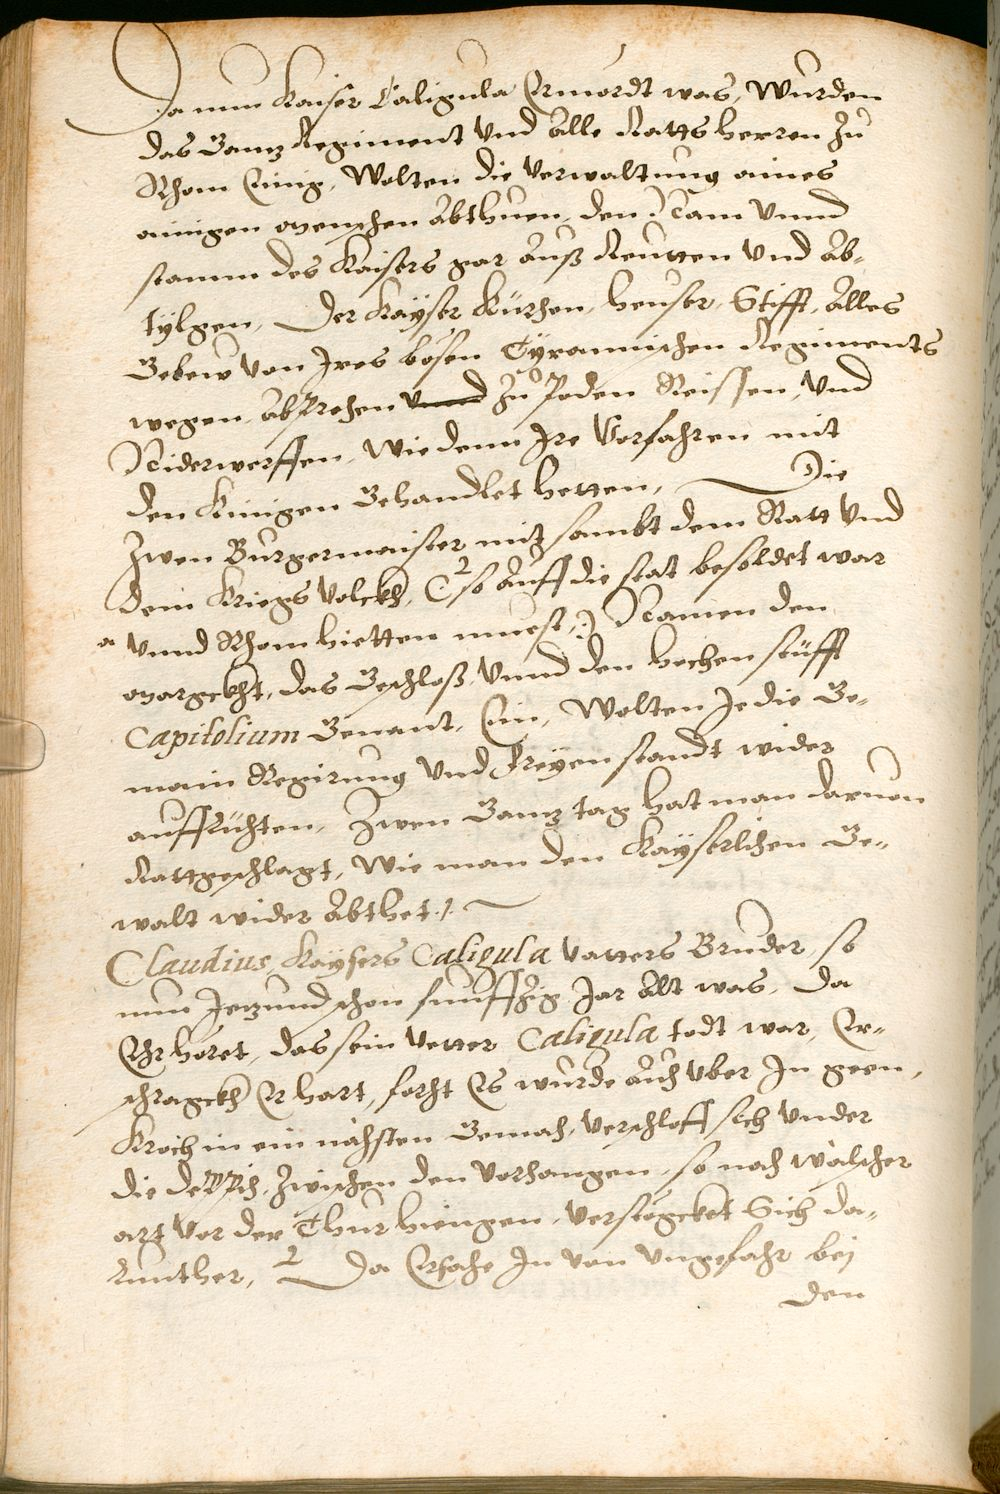 Da nun Kaiser Caligula Ermordt was, Wurden
das Ganz Regiment Vnd Alle Ratts herren Zu
Rhom Einig, Wolten die Verwaltung aines
ainigen menschen Abthuen, den Nam Vnnd
stamm des Kaisers gar Auß Reutten Vnd Ab-
tylgen, Der Kayser Kürchen, heuser, Stifft, Alles
Gebew Von Jres bösen Tyrannischen Regiments
wegen, Abprechen Zu Poden Reissen, Vnd
Niderwerffen, Wie denn Jre Vorfahren mit
den Kinigen Gehandlet hetten, Die
Zwen Burgermaister mit sambt dem Ratt Vnd
dem Kriegs Volckh, (so Auff die stat besoldet war
a Vnnd Rhom hietten muest,) Namen den
marckht, das Geschloß, Vnnd den hochen stüfft
Capitolium Genant, Ein, Wolten Je die Ge-
main Regirung Vnd Freyen standt wider
auffrichten, Zwen Ganz tag hat man daruon
Rattgeschlagt, Wie man den Kayserlichen Ge-
walt wider Abthet ./.
Claudius, Kaysers Caligula Vatters Bruder, so
nun Jezund schon funffzig Jar Alt was, Da
Ehr höret, das sein Vetter Caligula todt war, Er-
schragckh Er hart, forcht Es wurde Auch Vber Jn geen,
Kroch in ein nähsten Gemach, Verschloff sich Vnder
die Deppich, Zwischen den Vorhangen, so nach Wälscher
art Vor der Thur hiengen, Versteckhet Sich da-
runther, Da Ersahe Jn Von Vngefahr bej
den